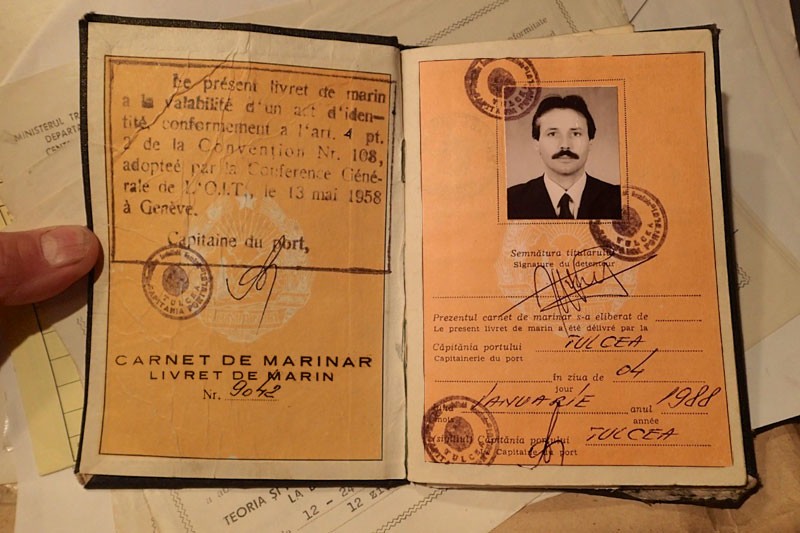 Le présent livret de marin
a la valabilité d'un act d'iden-
tité, conformement a l'art. 4 pt.
2 de la Convention Nr. 108,
adoptée par la Conférence Géné-
rale de L'O.I.T., le 13 mai 1958
à Genève.
Capitaine du port,
TULCEA
CARNET DE MARINAR
LIVRET DE MARIN
Nr. 9042
TULCEA
TULCEA
Semnătura titularului
Signature du détenteur
Prezentul carnet de marinar s-a eliberat de
Le présent livret de marin a été délivré par la
Căpitănia portului TULCEA
Capitainerie du port
în ziua de 04
jour
IANUARIE anul 1988
mois année
Căpitănia portului TULCEA
Capitaine du port
TULCEA
MINISTERUL
TEORIA ȘI
12 - 24